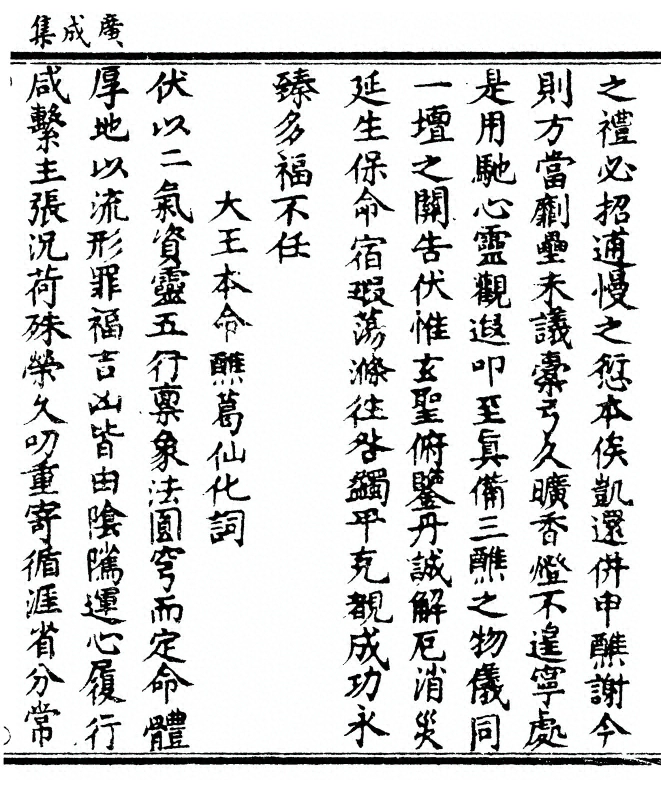 廣成集
之禮必招逋慢之愆本俟凱還併申醮謝今
則方當劘壘未議櫜弓久曠香燈不遑寧處
是用馳心靈觀遐叩至眞備三醮之物儀同
一壇之關告伏惟玄聖俯鑒丹誠解厄消災
延生保命宿瑕蕩滌往咎蠲平克覩成功永
臻多福不任
大王本命醮葛仙化詞
伏以二氣資靈五行禀象法圓穹而定命體
厚地以流形罪福吉凶皆由陰騭運心履行
咸繫主張況荷殊榮久叨重寄循涯省分常